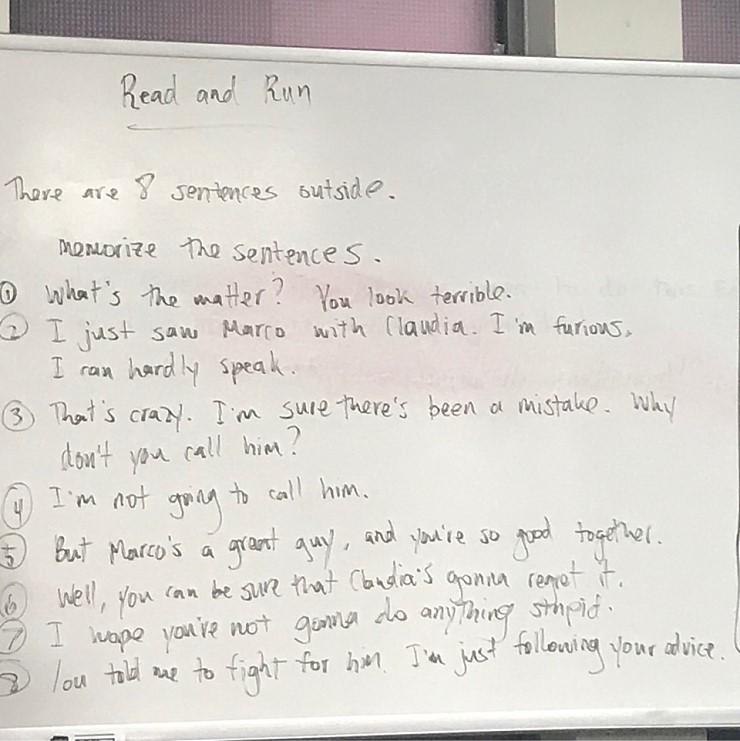 Read and Run
There are 8 sentences outside.
memorize the sentences.
① What's the matter? You look terrible.
② I just saw Marco with Claudia. I'm furious.
I can hardly speak.
③ That's crazy. I'm sure there's been a mistake. Why
don't you call him?
④ I'm not going to call him.
⑤ But Marco's a great guy, and you're so good together.
⑥ Well, you can be sure that Claudia's gonna regret it.
⑦ I hope you're not gonna do anything stupid.
⑧ You told me to fight for him. I'm just following your advice.